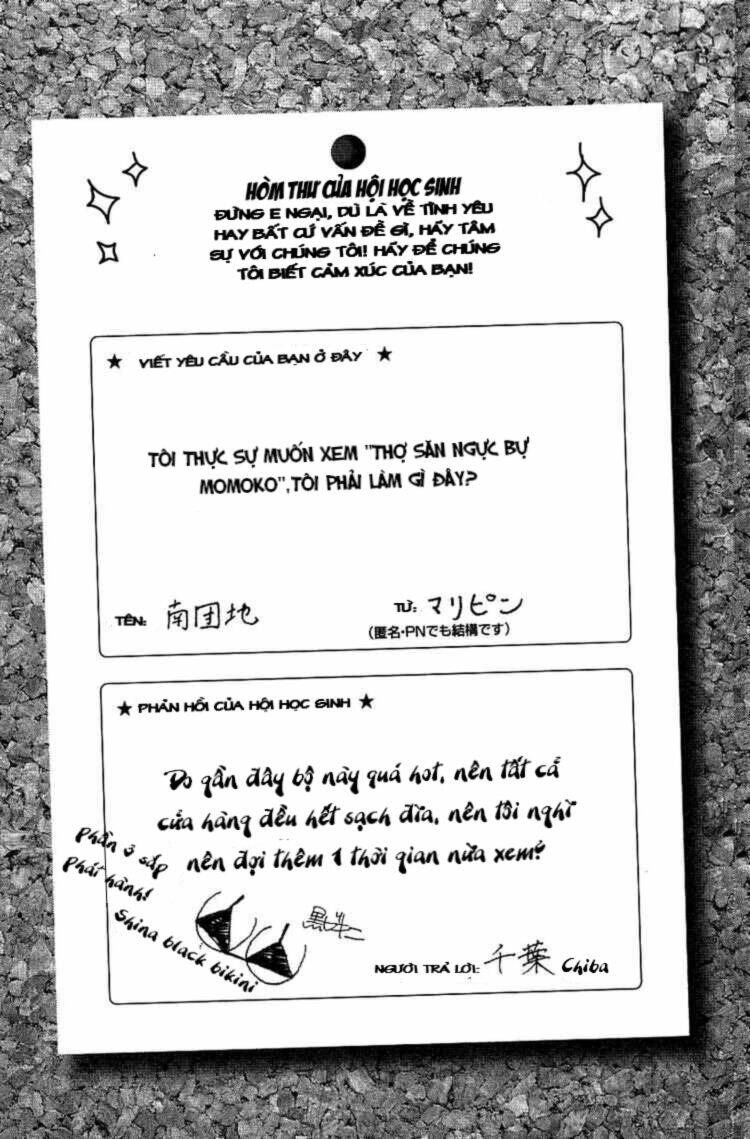 HÒM THƯ CỦA HỘI HỌC SINH
ĐỪNG E NGẠI, DÙ LÀ VỀ TÌNH YÊU
HAY BẤT CỨ VẤN ĐỀ GÌ, HÃY TÂM
SỰ VỚI CHÚNG TÔI! HÃY ĐỂ CHÚNG
TÔI BIẾT CẢM XÚC CỦA BẠN!
★ VIẾT YÊU CẦU CỦA BẠN Ở ĐÂY ★
TÔI THỰC SỰ MUỐN XEM "THỢ SĂN NGỰC BỰ
MOMOKO",TÔI PHẢI LÀM GÌ ĐÂY?
TÊN: 南団地
TỪ: マリピン
(匿名・PNでも結構です)
★ PHẢN HỒI CỦA HỘI HỌC SINH ★
Do gần đây bộ này quá hot, nên tất cả
cửa hàng đều hết sạch đĩa, nên tôi nghĩ
nên đợi thêm 1 thời gian nữa xem?
Phần 3 sắp
Phát hành!
Shina black bikini
NGƯỜI TRẢ LỜI: 千葉 Chiba